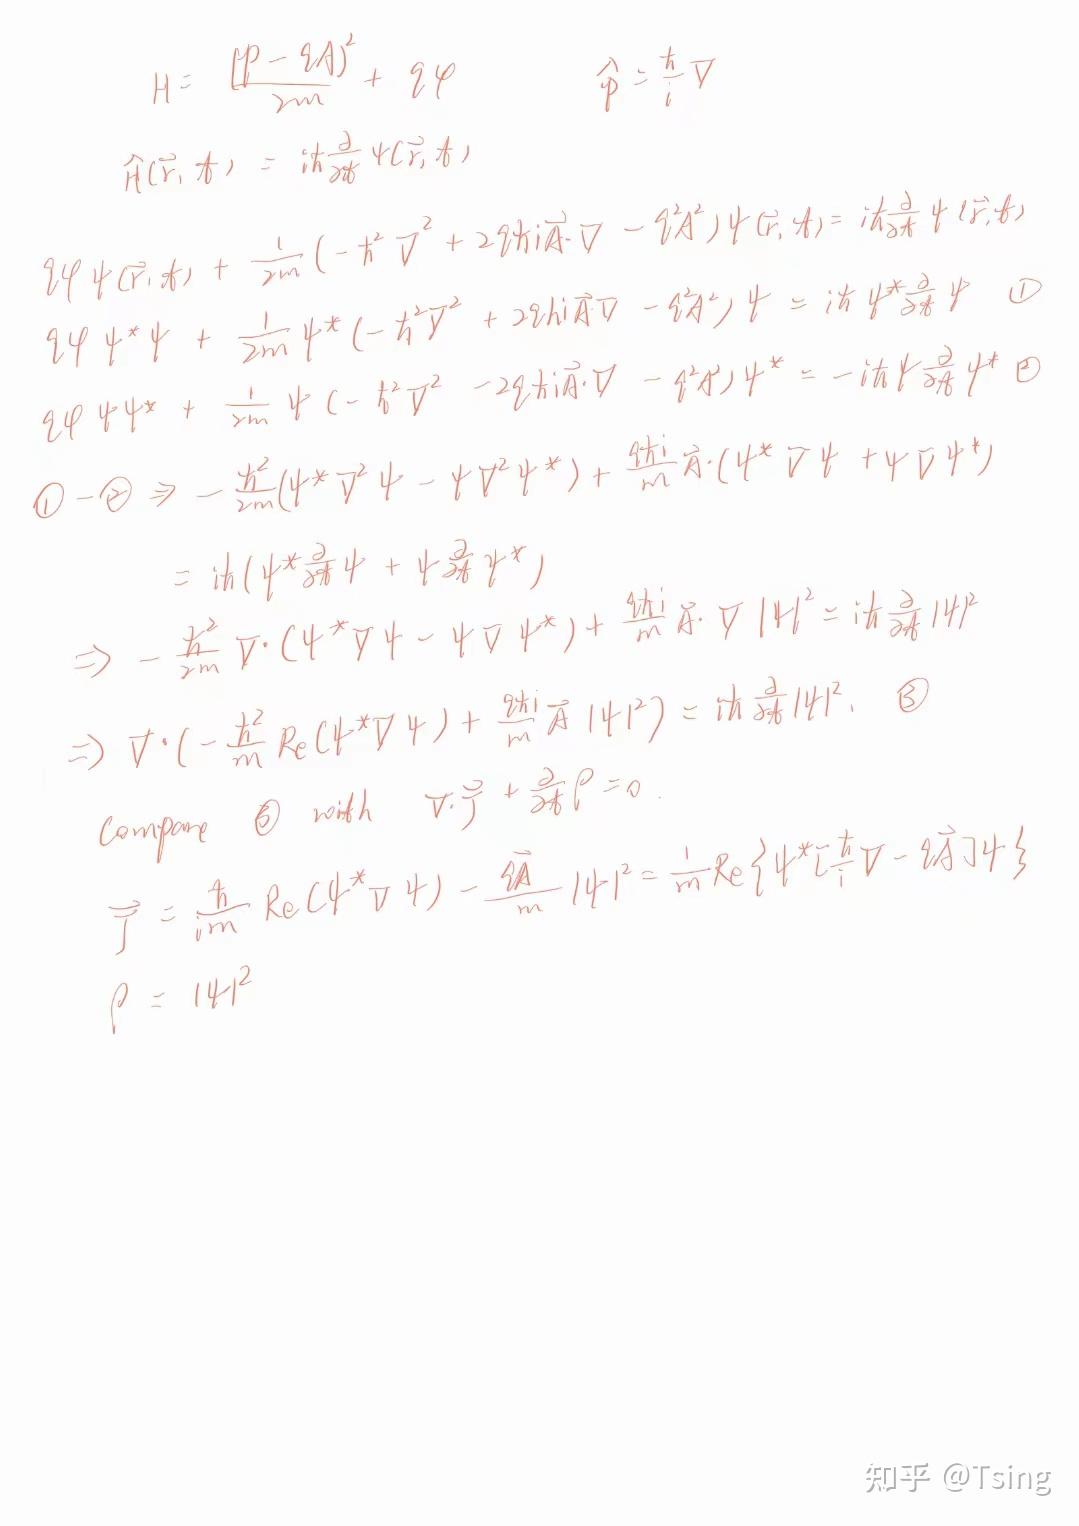 H = (p - qA)²/2m + qφ    p̂ = ħ/i ∇
Ĥ(r⃗, t) = iħ ∂/∂t ψ(r⃗, t)
qφ ψ(r⃗, t) + 1/2m (-ħ²∇² + 2qħi A⃗·∇ - q²A²) ψ(r⃗, t) = iħ ∂/∂t ψ(r⃗, t)
qφ ψ*ψ + 1/2m ψ*(-ħ²∇² + 2qħi A⃗·∇ - q²A²) ψ = iħ ψ* ∂/∂t ψ ①
qφ ψψ* + 1/2m ψ (-ħ²∇² - 2qħi A⃗·∇ - q²A²) ψ* = -iħ ψ ∂/∂t ψ* ②
① - ② ⇒ -ħ²/2m (ψ*∇²ψ - ψ∇²ψ*) + qħi/m A⃗·(ψ*∇ψ + ψ∇ψ*)
= iħ (ψ* ∂/∂t ψ + ψ ∂/∂t ψ*)
⇒ -ħ²/2m ∇·(ψ*∇ψ - ψ∇ψ*) + qħi/m A⃗·∇|ψ|² = iħ ∂/∂t |ψ|²
⇒ ∇·(-ħ²/m Re(ψ*∇ψ) + qħi/m A⃗ |ψ|²) = iħ ∂/∂t |ψ|². ③
Compare ③ with ∇·J⃗ + ∂/∂t ρ = 0.
J⃗ = ħ/im Re(ψ*∇ψ) - qA⃗/m |ψ|² = 1/m Re{ψ*[ħ/i ∇ - qA⃗]ψ}
ρ = |ψ|²
知乎 @Tsing